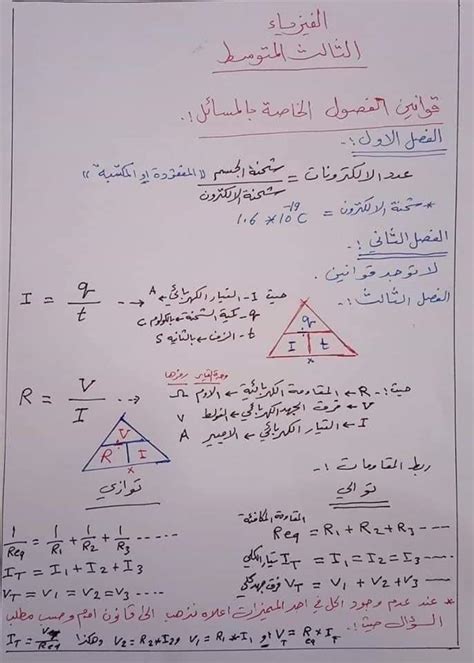 الفيزياء
الثالث المتوسط
قوانين الفصول الخاصة بالمسائل :.
الفصل الاول :-
عدد الالكترونات = شحنة الجسم / شحنة الالكترون «المفقودة او المكتسبة»
* شحنة الالكترون = 1.6 * 10^-19 C
الفصل الثاني :-
لا توجد قوانين .
الفصل الثالث :-
I = q / t ---> حيث I - التيار الكهربائي ← A
q - كمية الشحنة ← بالكولوم C
t - الزمن ← بالثانيه S
q
I t
x
وحدة القياس رمزها
R = V / I ---> حيث :- R ← المقاومة الكهربائية ← الاوم Ω
V ← فرق الجهد الكهربائي ← الفولط V
I ← التيار الكهربائي ← الامبير A
V
R I
x
ربط المقاومات :-
توالي
المقاومة المكافئة
Req = R1 + R2 + R3 ----
التيار الكلي IT = I1 = I2 = I3 ----
فرق جهد كلي VT = V1 + V2 + V3 ----
توازي
1/Req = 1/R1 + 1/R2 + 1/R3 -----
IT = I1 + I2 + I3
VT = V1 = V2 = V3 ----
* عند عدم وجود اكل في احد المميزات اعلاه نذهب الى قانون اوم وحسب مطلب
السؤال حيث :. VT = Req * IT او V1 = R1 * I1 و V2 = R2 * I2 وهكذا IT = VT/Req